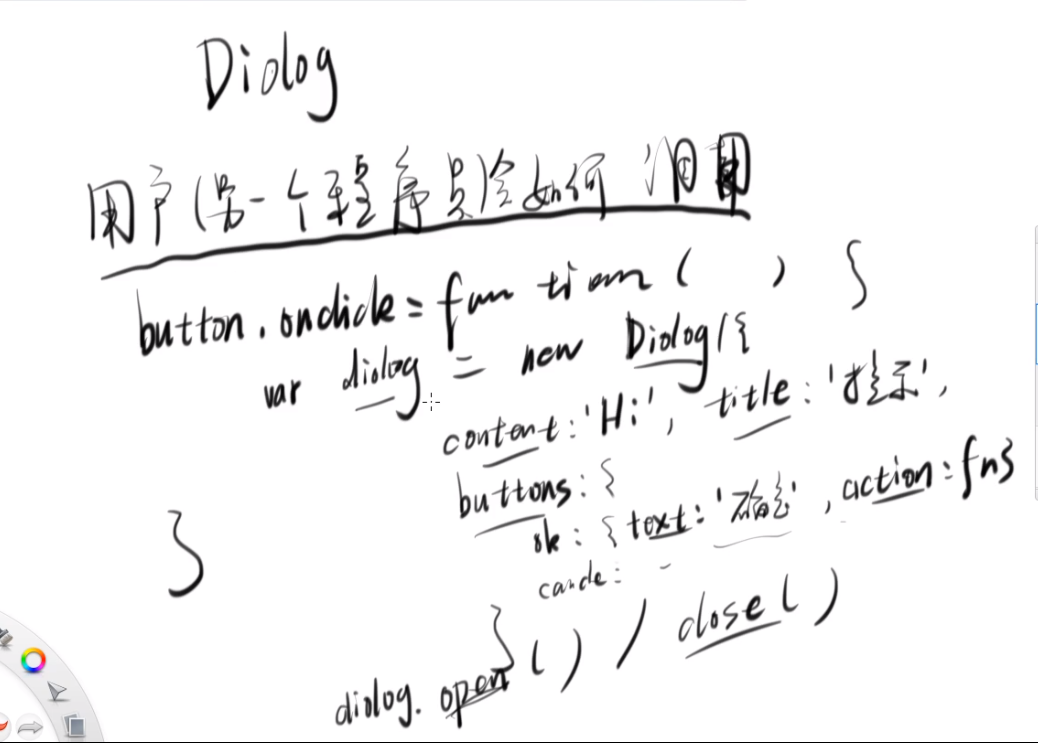 Diolog
用户(另一个程序员)会如何调用
button.onclick = function ( ) {
var diolog = new Diolog({
content: 'Hi', title: '提示',
buttons: {
ok: { text: '确定', action: fn}
cancle:
}
}
diolog. open () / close( )